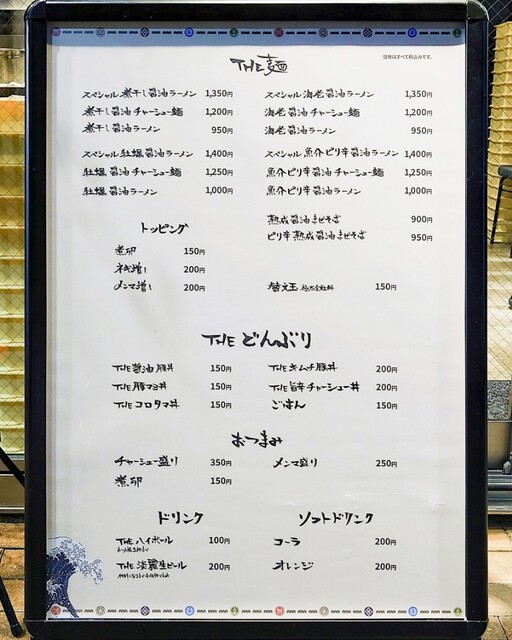 THE 麺
価格はすべて税込みです。
スペシャル煮干し醤油ラーメン 1,350円
煮干し醤油チャーシュー麺 1,200円
煮干し醤油ラーメン 950円
スペシャル牡蠣醤油ラーメン 1,400円
牡蠣醤油チャーシュー麺 1,250円
牡蠣醤油ラーメン 1,000円
スペシャル海老醤油ラーメン 1,350円
海老醤油チャーシュー麺 1,200円
海老醤油ラーメン 950円
スペシャル魚介ピリ辛醤油ラーメン 1,400円
魚介ピリ辛醤油チャーシュー麺 1,250円
魚介ピリ辛醤油ラーメン 1,000円
熟成醤油まぜそば 900円
ピリ辛熟成醤油まぜそば 950円
トッピング
煮卵 150円
ネギ増し 200円
メンマ増し 200円
替え玉 150円
THE どんぶり
THE 醤油豚丼 150円
THE 豚マヨ丼 150円
THE コロタマ丼 150円
THE キムチ豚丼 200円
THE 旨辛チャーシュー丼 200円
ごはん 150円
おつまみ
チャーシュー盛り 350円
煮卵 150円
メンマ盛り 250円
ドリンク
THE ハイボール 100円
THE 淡麗生ビール 200円
ソフトドリンク
コーラ 200円
オレンジ 200円